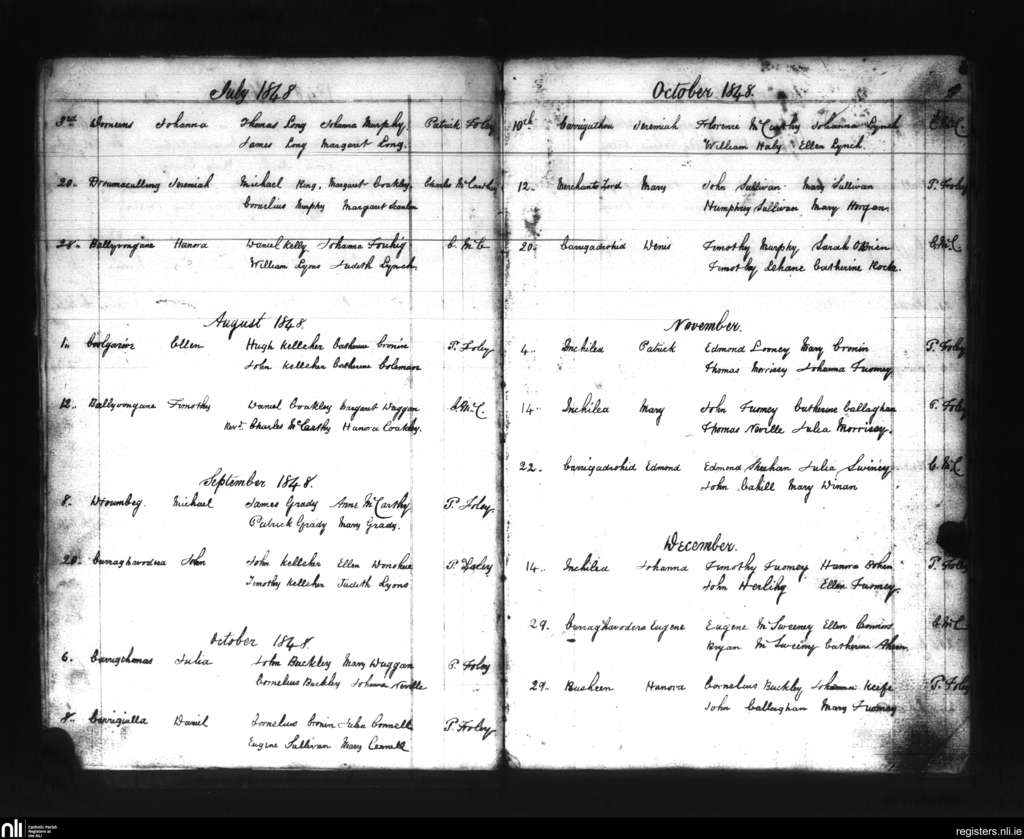 July 1848
3rd Johanna Thomas Long Johanna Murphy. Patrick Foley
James Long Margaret Long.
20. Dromaculling Jeremiah Michael King, Margaret Coakley. Charles McCarthy
Cornelius Murphy Margaret Scanlan
28. Ballyvongane Hanora Daniel Kelly Johanna C. McC
William Lyons Judith Lynch
August 1848.
1. Ellen Hugh Kelleher Catherine Cronin P. Foley
John Kelleher Catherine Coleman
12. Ballyvongane Timothy Daniel Coakley Margaret Duggan C. McC.
Revd. Charles McCarthy Hanora Coakley.
September 1848.
8. Droumbeg. Michael James Grady Anne McCarthy P. Foley.
Patrick Grady Mary Grady.
20. Curraghavodera John John Kelleher Ellen Donohue P. Foley
Timothy Kelleher Judith Lyons
October 1848.
6. Carrigthomas Julia John Buckley Mary Duggan P. Foley
Cornelius Buckley Johanna Neville
8. Daniel Cornelius Cronin Julia Connell P. Foley
Eugene Sullivan Mary Connell
October 1848.
10th Carrigathou Jeremiah Florence McCarthy Johanna Lynch C. McC.
William Haly Ellen Lynch.
12. Merchants Ford Mary John Sullivan Mary Sullivan P. Foley
Humphrey Sullivan Mary Horgan.
20. Carrigadrohid Denis Timothy Murphy Sarah O'Brien C. McC.
Timothy Lehane Catherine Roche.
November.
4. Inchilea Patrick Edmond Looney Mary Cronin P. Foley
Thomas Morrissy Johanna Twomey
14. Inchilea Mary John Twomey Catherine Callaghan P. Foley
Thomas Neville Julia Morrissey.
22. Carrigadrohid Edmond Edmond Sheehan Julia Swiney C. McC
John Cahill Mary Dinan
December.
14. Inchilea Johanna Timothy Twomey Hanora P. Foley
John Herlihy Ellen Twomey.
29. Curraghavodera Eugene Eugene McSweeney Ellen C. McC
Bryan McSweeny Catherine Ahern
29. Rusheen Hanora Cornelius Buckley Johanna Keefe P. Foley
John Callaghan Mary Twomey
nli Catholic Parish
Registers at
the NLI
registers.nli.ie